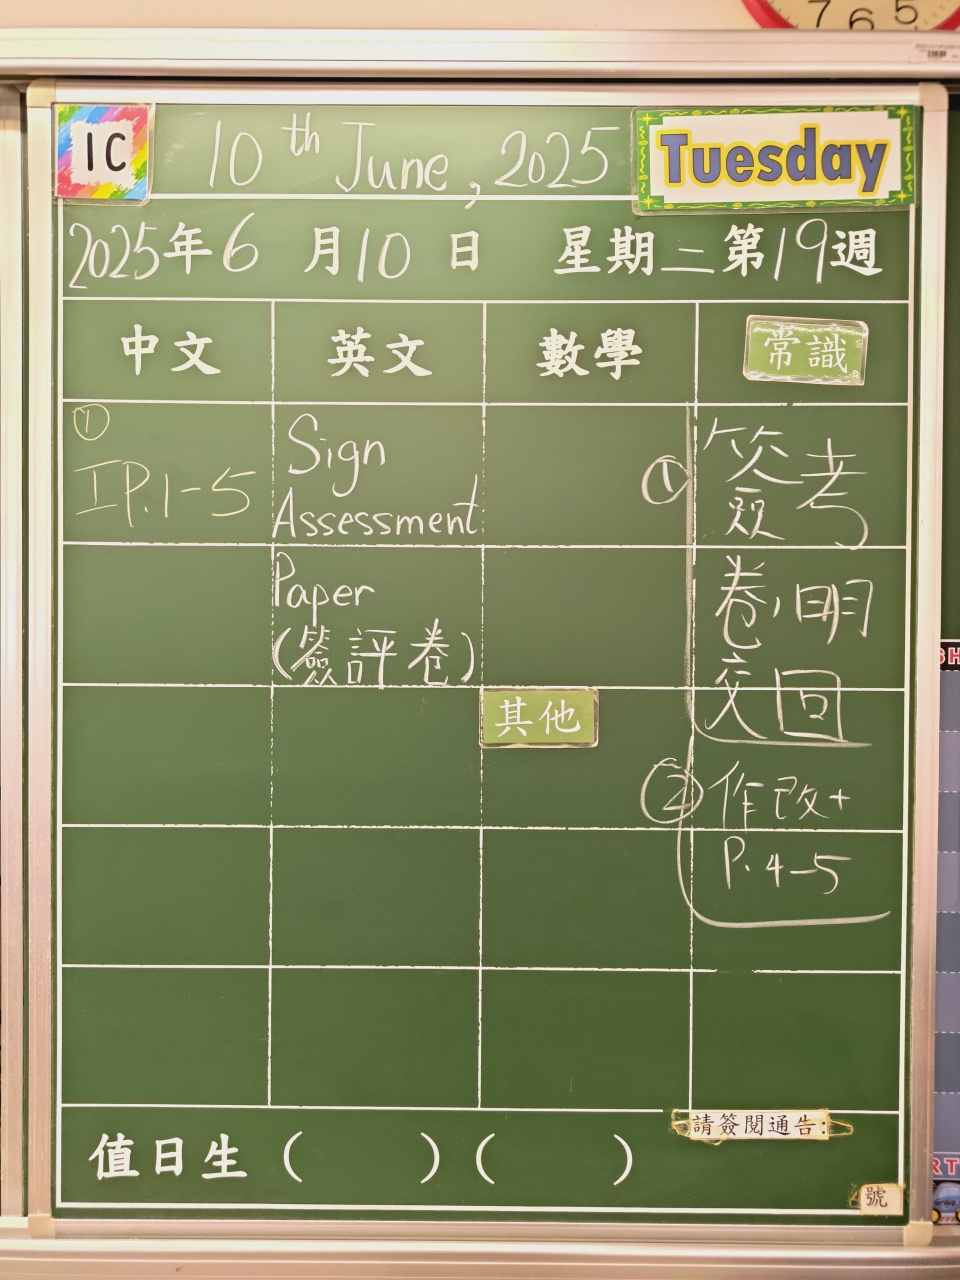 1C
10th June, 2025
Tuesday
2025年6月10日 星期二第19週
中文
英文
數學
常識
①
IP.1-5
Sign
Assessment
Paper
(簽評卷)
①
簽考
卷,明
交回
②
作改+
P.4-5
其他
值日生 ( ) ( )
請簽閱通告:
號
7 6 5